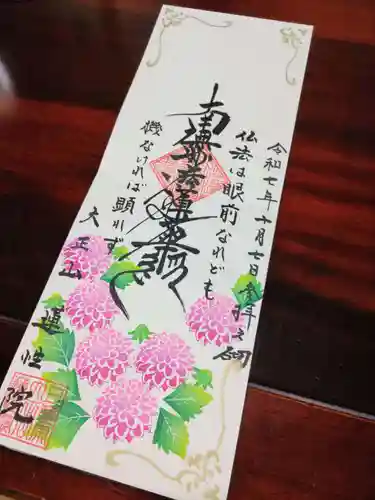 令和七年十月七日参拝之砌
仏法は眼前なれども
南無妙法蓮華経
機なければ顕れず
大上山
蓮性院